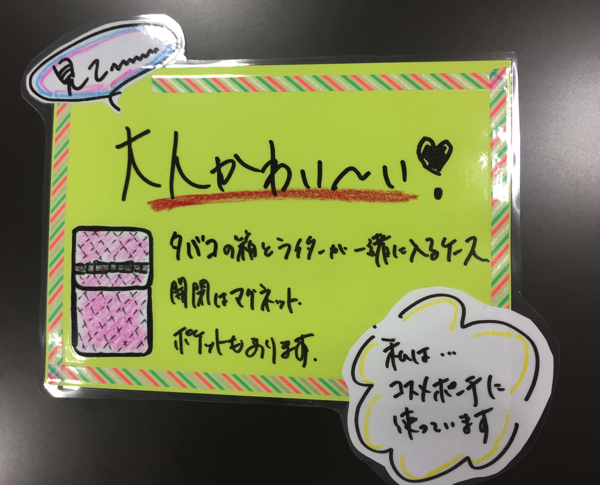 見て〜〜〜
大人かわい〜い♥!
タバコの箱とライターが一緒に入るケース
開閉はマグネット.
ポケットもあります.
私は…
コスメポーチに
使っています